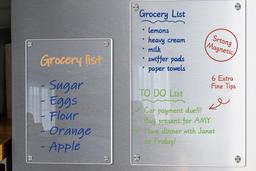 Grocery list
- Sugar
- Eggs
- Flour
- Orange
- Apple
Grocery List
• lemons
• heavy cream
• milk
• swiffer pads
• paper towels
Srtong
Magnetic
6 Extra
Fine Tips
TO DO List
Car payment due!!!
Buy present for AMY
Have dinner with Janet
on Friday!